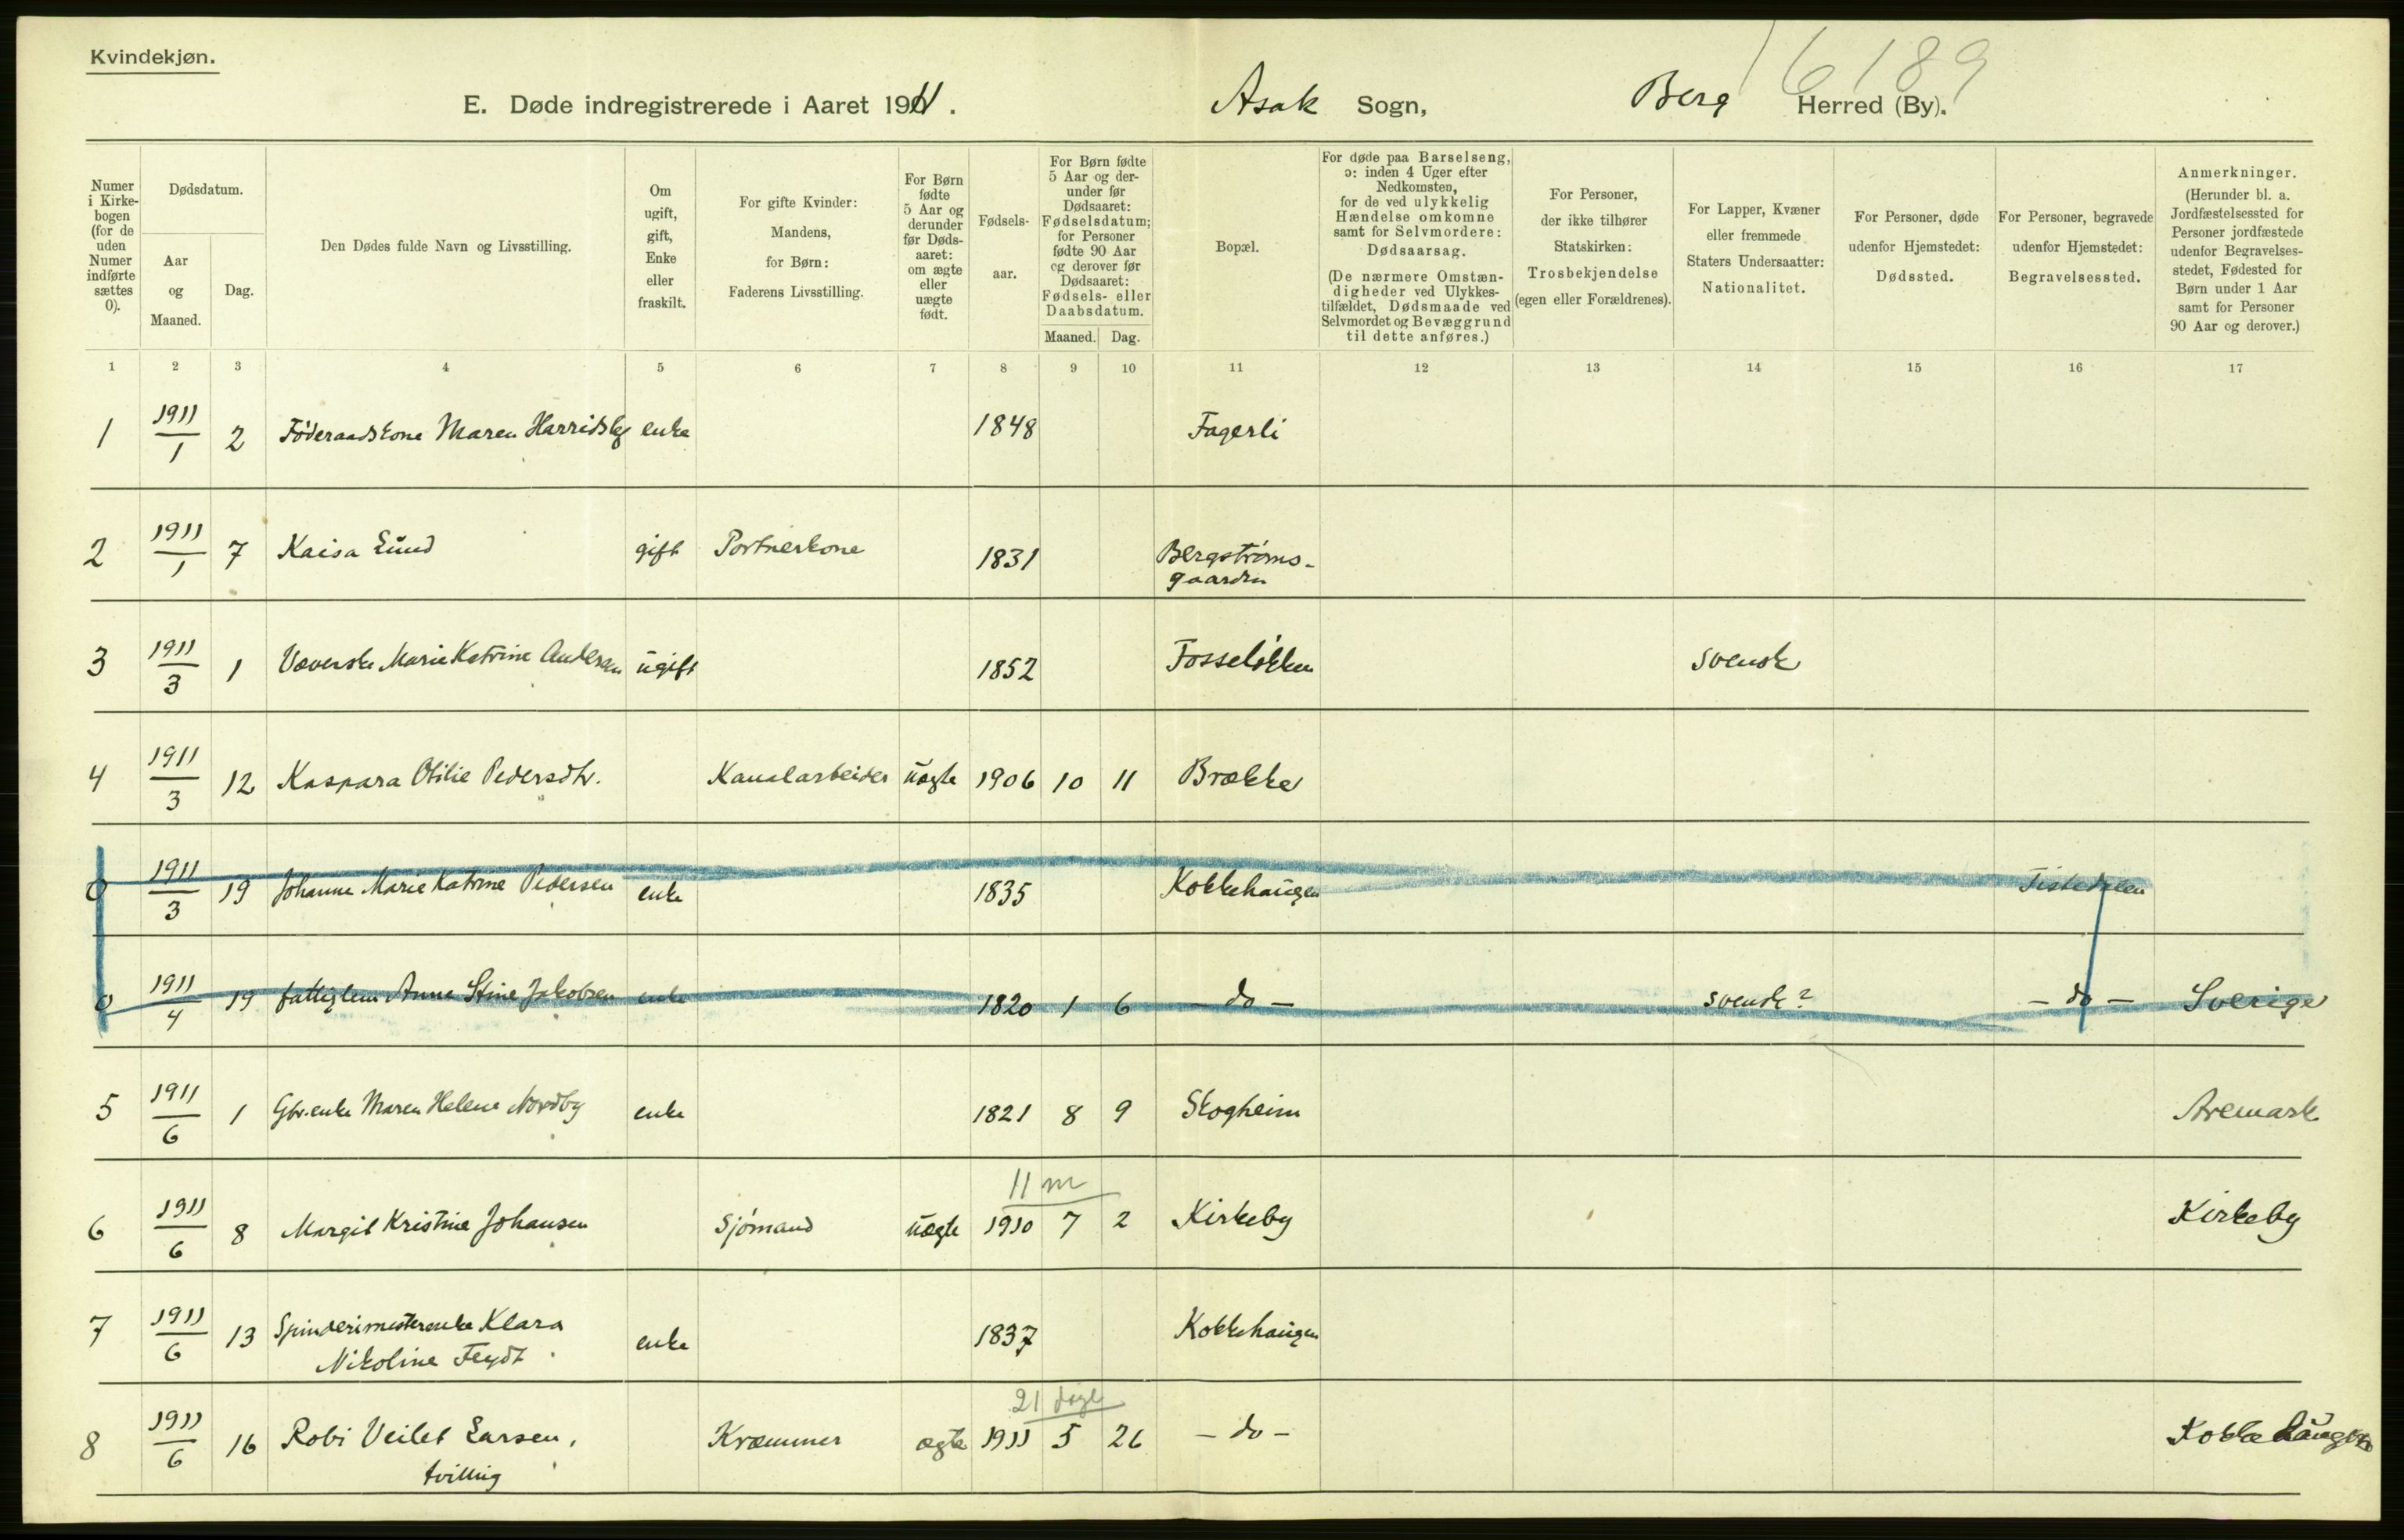 Kvindekjøn.
16189
E. Døde indregistrerede i Aaret 1911. Asak Sogn, Berg Herred (By).
Numer i Kirkebogen (for de uden Numer indførte sættes 0).
Dødsdatum.
Aar og Maaned.
Dag.
Den Dødes fulde Navn og Livsstilling.
Om ugift, gift, Enke eller fraskilt.
For gifte Kvinder: Mandens, for Børn: Faderens Livsstilling.
For Børn fødte 5 Aar og derunder før Dødsaaret: om ægte eller uægte født.
Fødselsaar.
For Børn fødte 5 Aar og derunder før Dødsaaret: Fødselsdatum; for Personer fødte 90 Aar og derover før Dødsaaret: Fødsels- eller Daabsdatum.
Maaned. Dag.
Bopæl.
For døde paa Barselseng, ɔ: inden 4 Uger efter Nedkomsten, for de ved ulykkelig Hændelse omkomne samt for Selvmordere: Dødsaarsag.
(De nærmere Omstændigheder ved Ulykkestilfældet, Dødsmaade ved Selvmordet og Bevæggrund til dette anføres.)
For Personer, der ikke tilhører Statskirken: Trosbekjendelse (egen eller Forældrenes).
For Lapper, Kvæner eller fremmede Staters Undersaatter: Nationalitet.
For Personer, døde udenfor Hjemstedet: Dødssted.
For Personer, begravede udenfor Hjemstedet: Begravelsessted.
Anmerkninger.
(Herunder bl. a. Jordfæstelsessted for Personer jordfæstede udenfor Begravelsesstedet, Fødested for Børn under 1 Aar samt for Personer 90 Aar og derover.)
1 2 3 4 5 6 7 8 9 10 11 12 13 14 15 16 17
1 1911/1 2 Föderaadskone Maren Harridslef enke 1848 Fagerli
2 1911/1 7 Kaisa Lund gift Portnerkone 1831 Bergströms-
gaarden
3 1911/3 1 Væverske Marie Katrine Andersen ugift 1852 Fosselökken svensk
4 1911/3 12 Kaspara Otilie Pedersdtr. Kanalarbeider uægte 1906 10 11 Brække
0 1911/3 19 Johanne Marie Katrine Pedersen enke 1835 Kokkehaugen Tistedalen
0 1911/4 19 fattiglem Anne Stine Jakobsen enke 1820 1 6 - do - svensk? - do - Sverige
5 1911/6 1 Gbr.enke Maren Helene Nordby enke 1821 8 9 Skogheim Aremark
11 m
6 1911/6 8 Margit Kristine Johansen Sjömand uægte 1910 7 2 Kirkeby Kirkeby
7 1911/6 13 Spinderimesterenke Klara enke 1837 Kokkehaugen
Nikoline Feydt
21 dage
8 1911/6 16 Robi Veilet Larsen, Kræmmer ægte 1911 5 26 - do - Kokkehaugen
tvilling